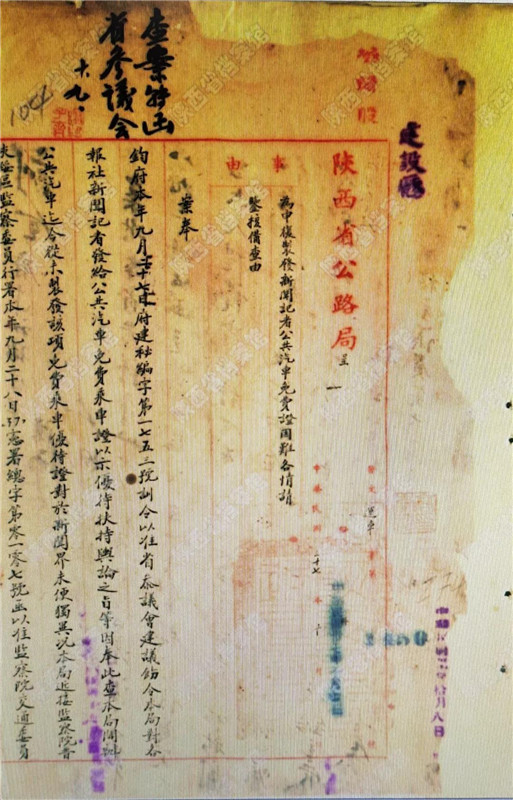 建設廳
陝西省公路局 呈
事由
為申復製發新聞記者公共汽車免費證困難各情請
鑒核備查由
中華民國三十七年十月
案奉
鈞府本年九月二十七日府建秘編字第一七五三號訓令以准省參議會建議飭令本局對各
報社新聞記者發給公共汽車免費乘車證以示優待扶持輿論之旨等因奉此查本局開辦
公共汽車迄今從未製發該項免費乘車優待證對於新聞界未便獨異況本局近接監察院晉
陝區監察委員行署本年九月二十八日
憲署總字第零一零七號函以准監察院交通委員
查案特函
省參議會
十、九、
陕西省档案馆